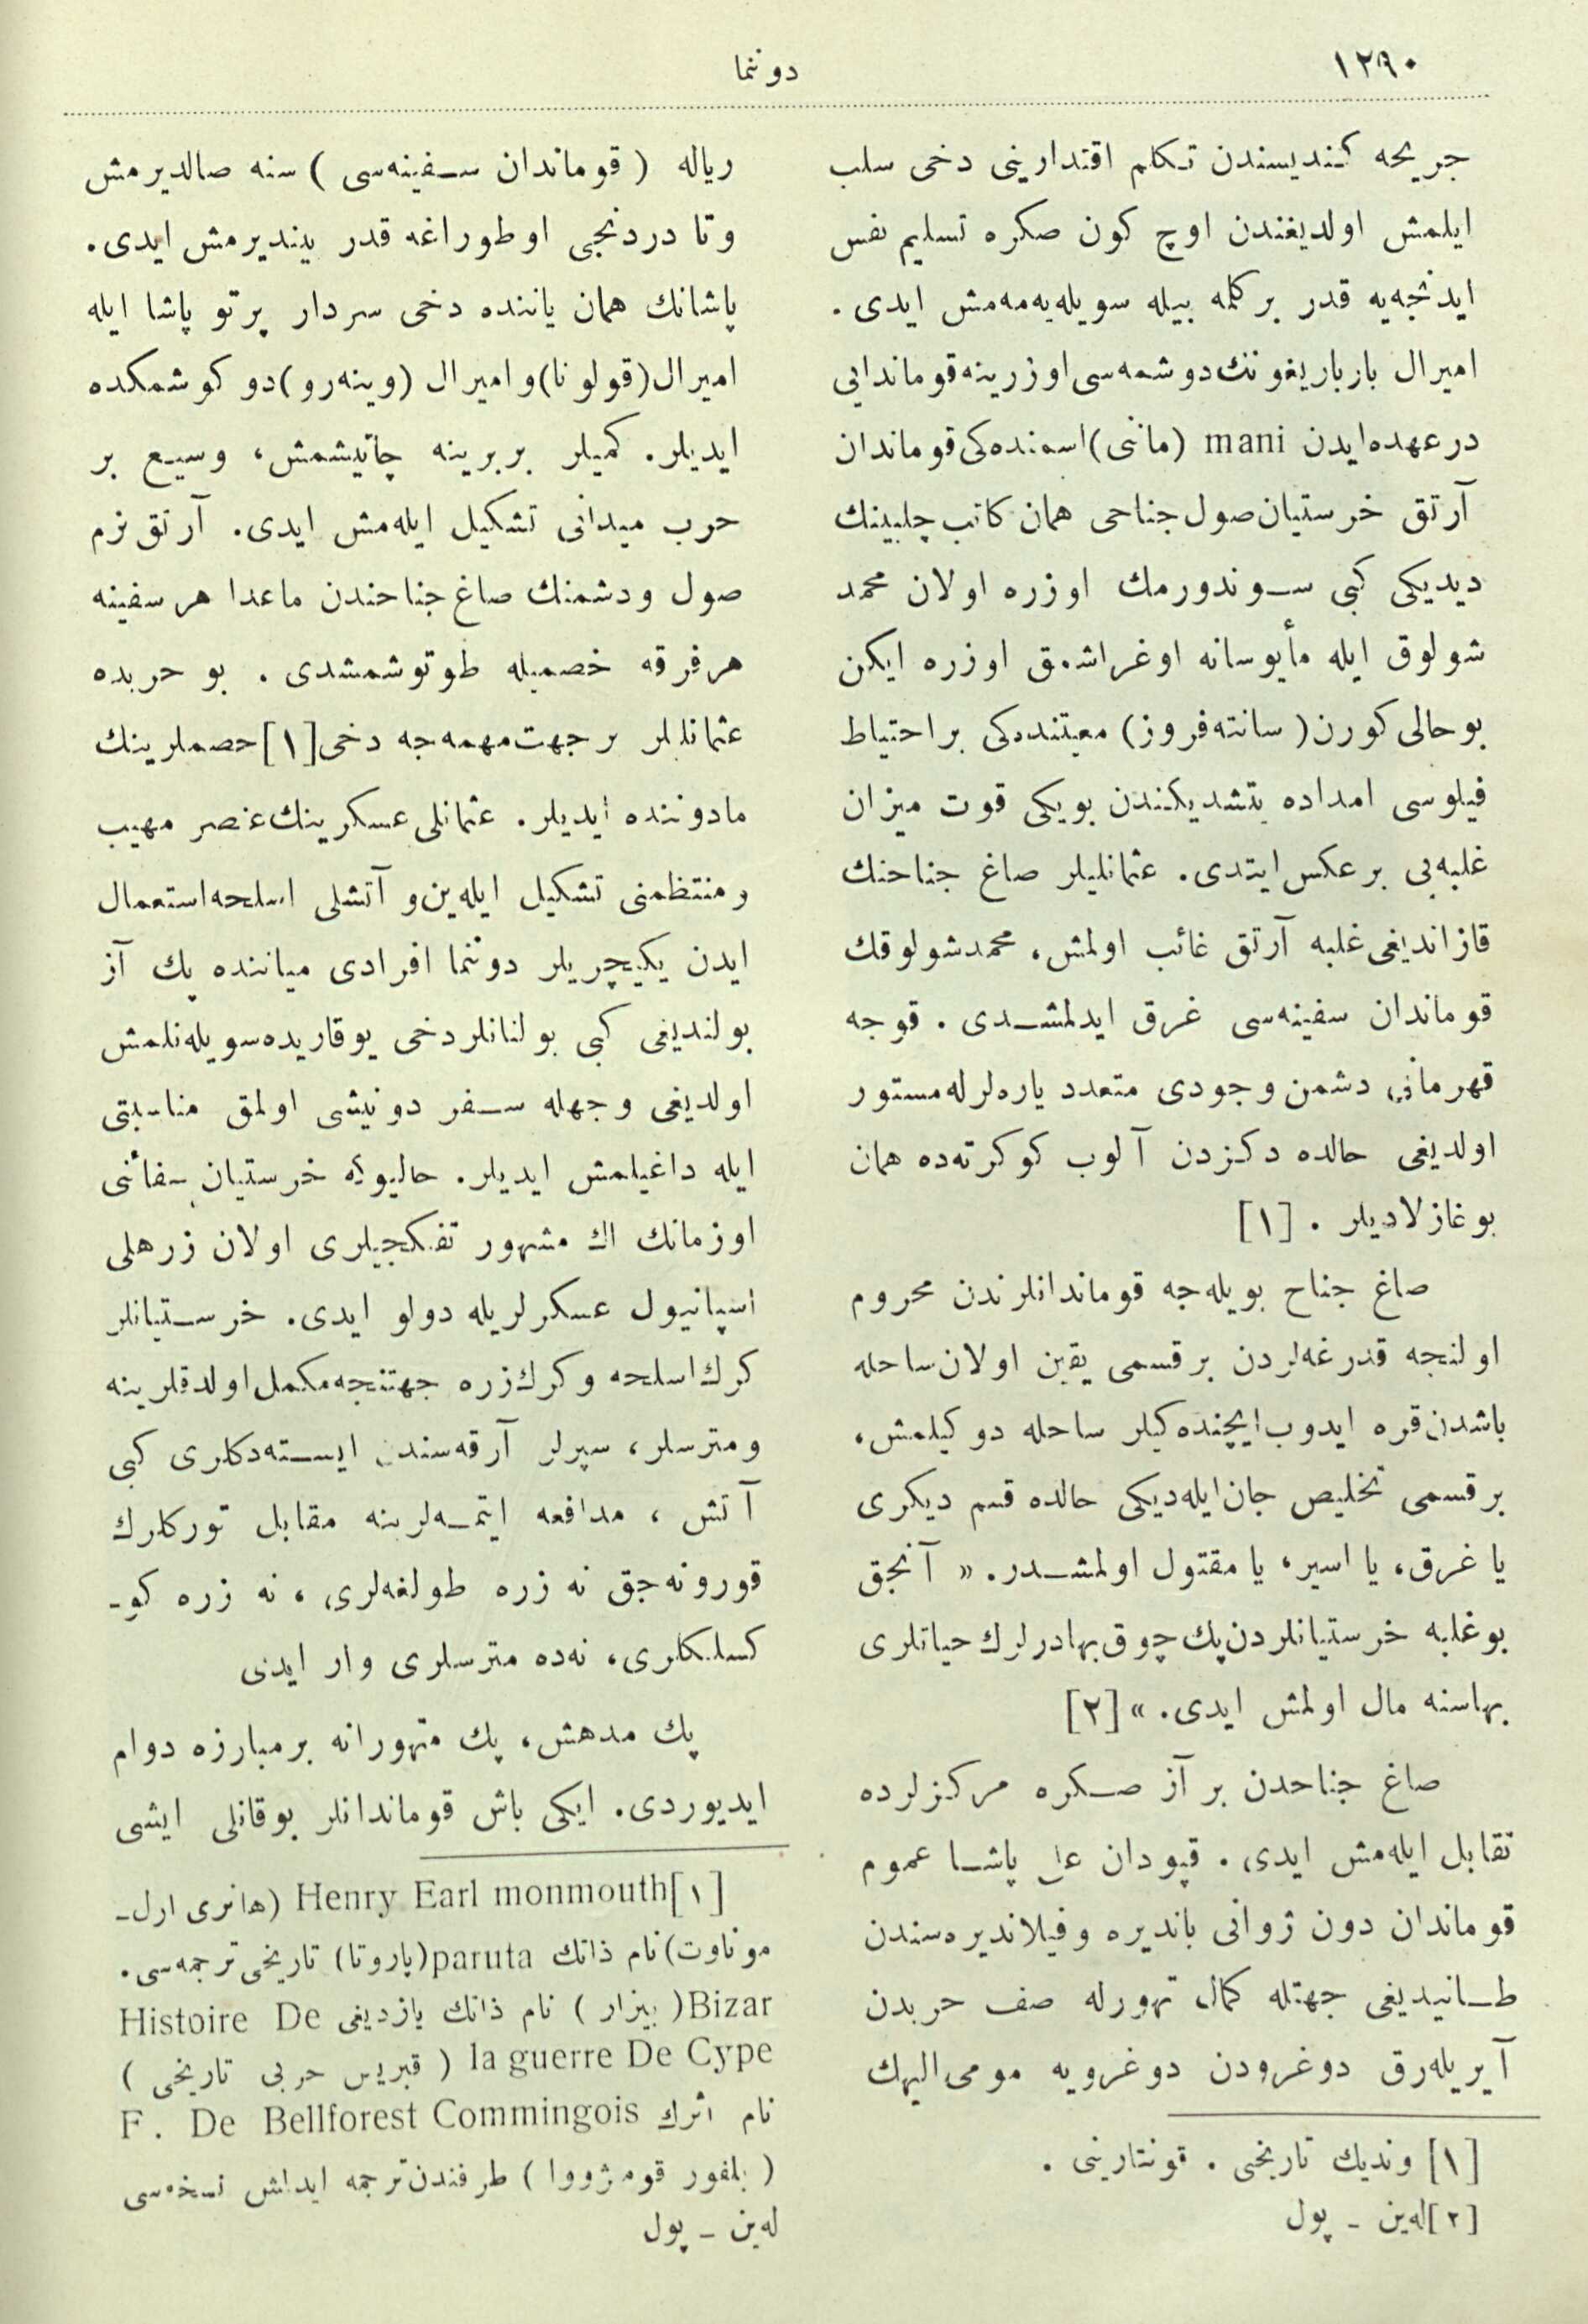 ١٢٩٠
دوننما
جريحه كنديسندن تكلم اقتدارينى دخى سلب
ايلمش اولديغندن اوچ كون صكره تسليم نفس
ايدنجه‌يه قدر بر كلمه بيله سويله‌يه‌مه‌مش ايدى .
اميرال بارباريغونك دوشمه‌سى اوزرينه قوماندايى
درعهده ايدن mani (مانى) اسمنده‌كى قوماندان
آرتق خرستيان صول جناحى همان كاتب چلبينك
ديديكى كبى سوندورمك اوزره اولان محمد
شولوق ايله مأيوسانه اوغراشمق اوزره ايكن
بو حالى كورن (سانته‌فروز) معيتنده‌كى بر احتياط
فيلوسى امداده يتشديكندن بويكى قوت ميزان
غلبه‌يى بر عكس ايتدى. عثمانليلر صاغ جناحنك
قازانديغى غلبه آرتق غائب اولمش، محمد شولوقك
قوماندان سفينه‌سى غرق ايدلمشدى . قوجه
قهرمانى دشمن وجودى متعدد ياره‌لرله مستور
اولديغى حالده دكزدن آلوب كوكرته‌ده همان
بوغازلاديلر . [١]
صاغ جناح بويله‌جه قوماندانلرندن محروم
اولنجه قدرغه‌لردن بر قسمى يقين اولان ساحله
باشدن قره ايدوب ايچنده‌كيلر ساحله دوكيلمش،
بر قسمى تخليص جان ايله‌ديكى حالده قسم ديكرى
يا غرق، يا اسير، يا مقتول اولمشدر. « آنجق
بو غلبه خرستيانلردن پك چوق بهادرلرك حياتلرى
بهاسنه مال اولمش ايدى. » [٢]
صاغ جناحدن بر آز صكره مركزلرده
تقابل ايله‌مش ايدى . قپودان على پاشا عموم
قوماندان دون ژوانى بانديره وفيلانديره‌سندن
طانيديغى جهتله كمال تهورله صف حربدن
آيريله‌رق دوغرودن دوغرويه مومى اليهك
[١] ونديك تاريخى . قونتارينى .
[٢] له‌ين ـ پول
رياله ( قوماندان سفينه‌سى ) سنه صالديرمش
وتا دردنجى اوطوراغه قدر بينديرمش ايدى.
پاشانك همان ياننده دخى سردار پرتو پاشا ايله
اميرال (قولونا) و اميرال (وينه‌رو) دوكوشمكده
ايديلر. كميلر بربرينه چاتيشمش، وسيع بر
حرب ميدانى تشكيل ايله‌مش ايدى. آرتق بزم
صول ودشمنك صاغ جناحندن ماعدا هر سفينه
هر فرقه خصميله طوتوشمشدى . بو حربده
عثمانليلر بر جهت مهمه‌جه دخى [١] خصملرينك
مادوننده ايديلر. عثمانلى عسكرينك عنصر مهيب
ومنتظمنى تشكيل ايله‌ين و آتشلى اسلحه استعمال
ايدن يكيچريلر دوننما افرادى مياننده پك آز
بولنديغى كبى بولنانلردخى يوقاريده سويله‌نلمش
اولديغى وجهله سفر دونيشى اولمق مناسبتى
ايله داغيلمش ايديلر. حالبوكه خرستيان سفائنى
اوزمانك اك مشهور تفكجيلرى اولان زرهلى
اسپانيول عسكرلريله دولو ايدى. خرستيانلر
كرك اسلحه و كرك زره جهتنجه مكمل اولدقلرينه
ومترسلر، سپرلر آرقه‌سندن ايسته‌دكلرى كبى
آتش ، مدافعه ايتمه‌لرينه مقابل توركلرك
قورونه‌جق نه زره طولغه‌لرى ، نه زره كو-
كسلكلرى، نه‌ده مترسلرى وار ايدى
پك مدهش، پك متهورانه بر مبارزه دوام
ايديوردى. ايكى باش قوماندانلر بو قانلى ايشى
[١] Henry Earl monmouth (هانرى ارل-
موناوت) نام ذاتك paruta (پاروتا) تاريخى ترجمه‌سى.
Bizar (بيزار) نام ذاتك يازديغى Histoire De
la guerre De Cype ( قبريس حربى تاريخى )
نام اثرك F . De Bellforest Commingois
( بلفور قومژووا ) طرفندن ترجمه ايدلمش نسخه‌سى
له‌ين ـ پول